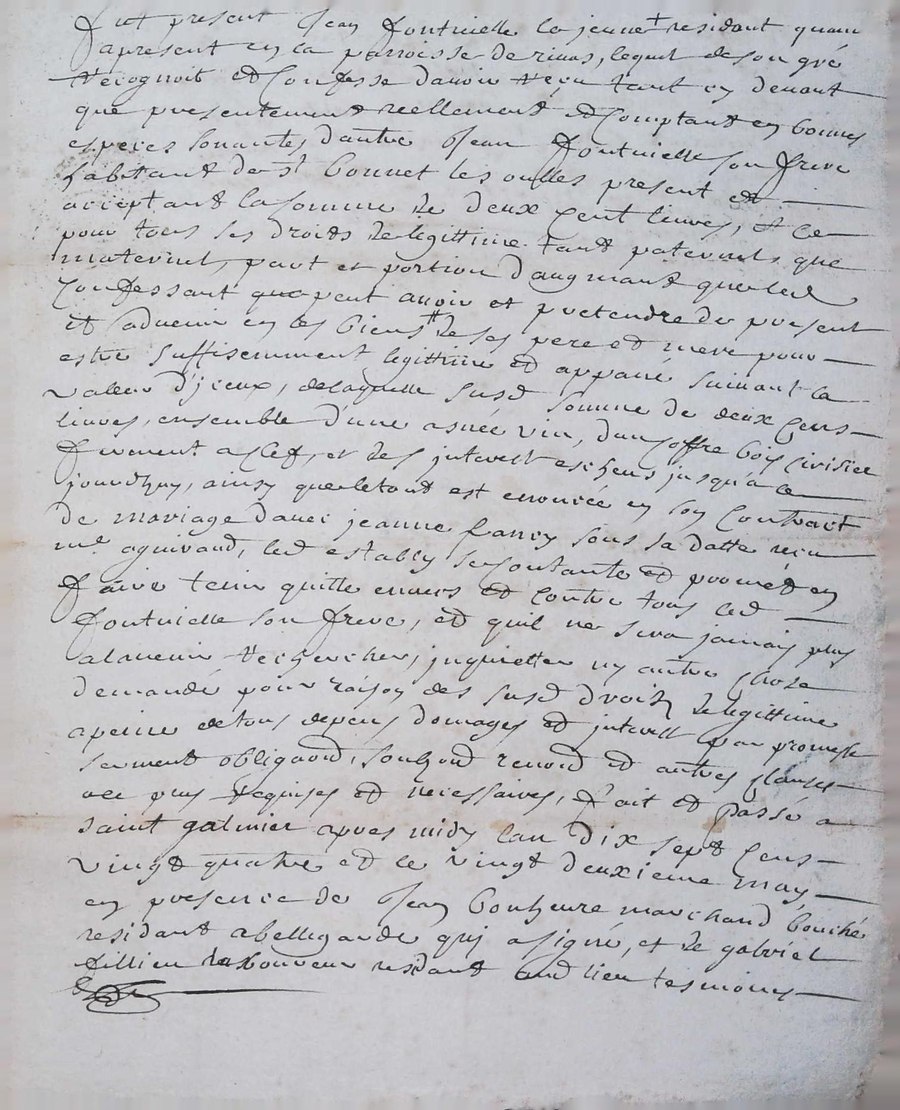 fut present Jean fontvielle le jeune + residant quan
apresent en la parroisse de rivas, lequel de son gré
recognoit et Confesse d'avoir receu tant cy devant
que presentement reellement et Comptant en bonnes
especes sonantes d'autre Jean fontvielle son frere
habitant de St bonnet les oulles present et
acceptant la somme de deux Cent livres, et ce
pour tous ses droits de legittime tant paternels que
maternel, part et portion d'augmant que led
Confessant qua peut avoir et pretendre de present
et advenir en les biens # de ses pere et mere pour
estre suffisemment legittime et appané suivant la
valleur d'iceux, de laquelle susd somme de deux Cens
livres, ensemble d'une asnée vin, d'un Coffre bois Cirisier
firmant a Clef, et des interest escheus jusqu'a ce
jourdhuy, ainsy que le tout est enoncée en son Contract
de mariage d'avec jeanne sous sa datte receu
me aguiraud, led estably se Contante et promet en
faire tenir quitte envers et contre tous led
fontvielle son frere, et quil ne sera jamais plus
alavenir rechercher, inquietter ny autre chose
demandé pour raison des susd droits de legittime
a peine de tous depens domages et interest par promesse
serment obligaond, soubzond renond et autres clauses
ace plus requises et necessaires, fait et passé a
saint galmier apres midy l'an dix sept Cens
vingt quatre et le vingt deuxieme may
en presence de Jean bonheure marchand bouché
residant a bellegarde qui a signé, et de gabriel
fillieu laboureur residant aud lieu tesmoins